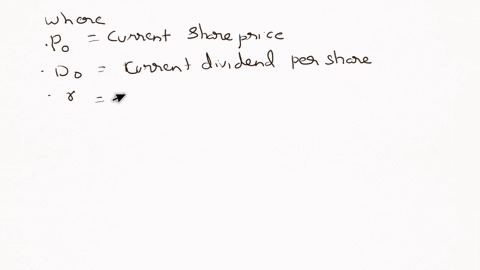 where
· P₀ = Current Share price
· D₀ = Current dividend per share
· r =